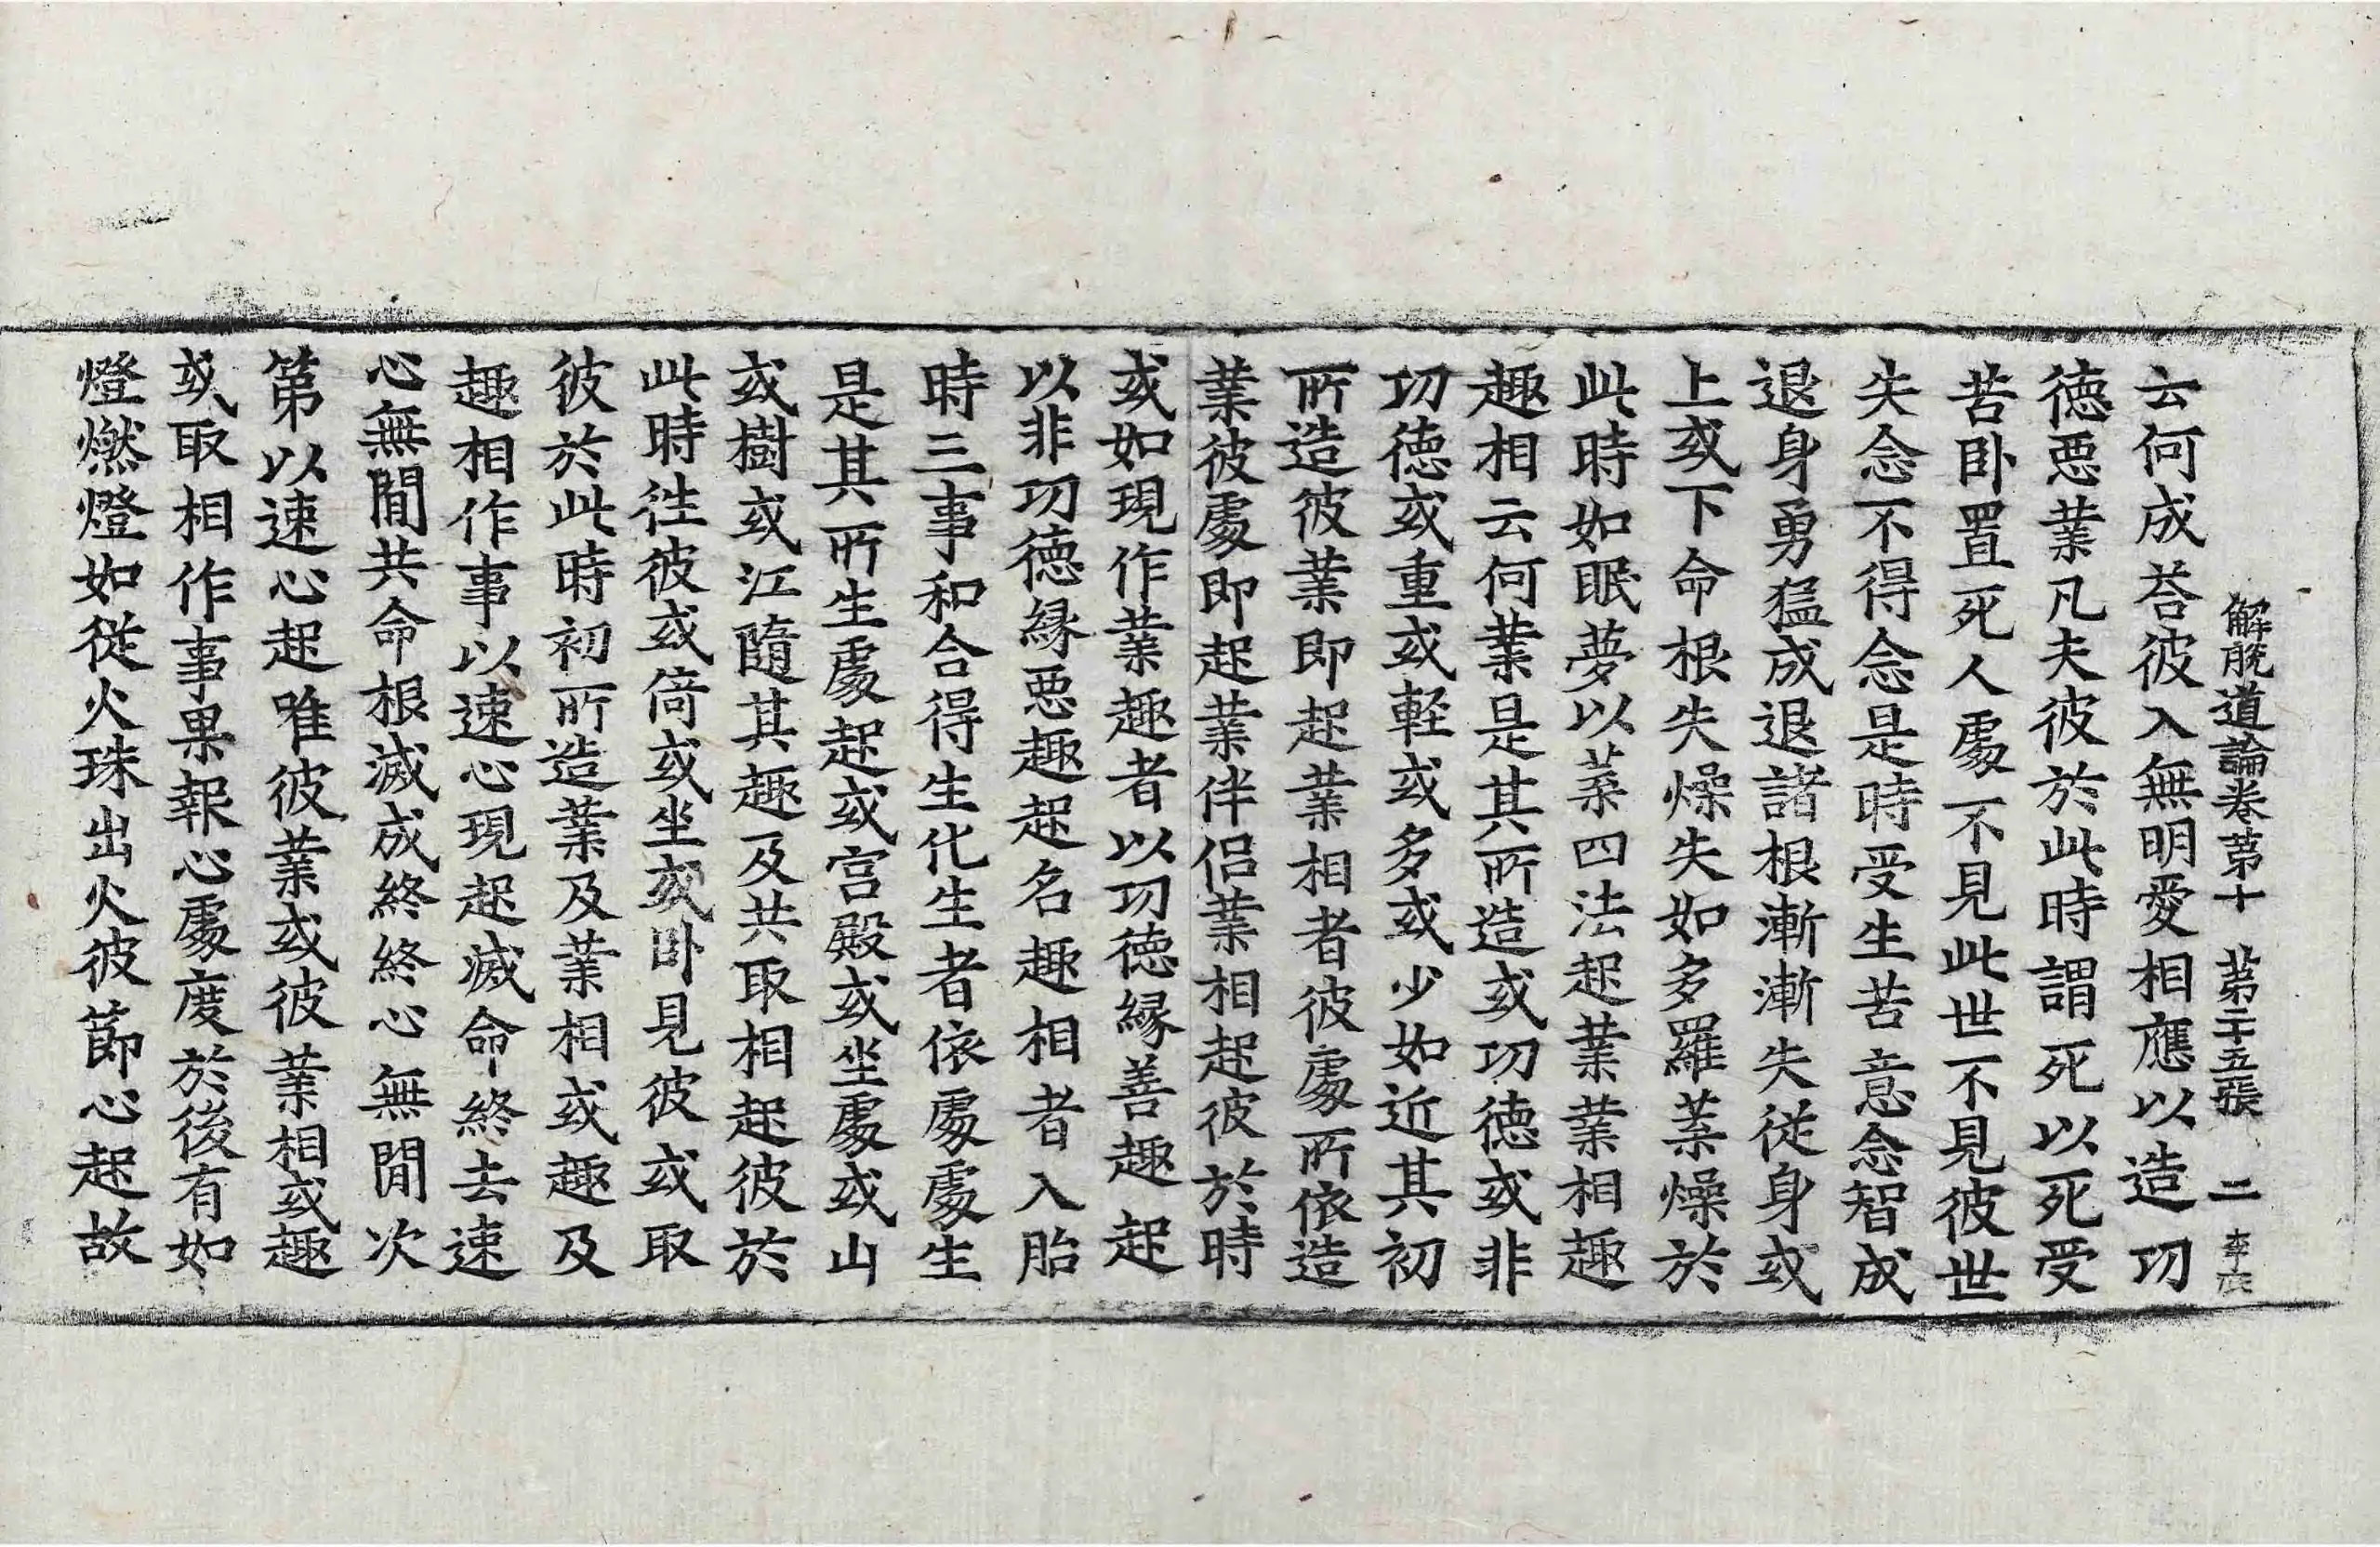 解脫道論卷第十　第二十五張　二
云何成荅彼入無明愛相應以造功
德惡業凡夫彼於此時謂死以死受
苦臥置死人處不見此世不見彼世
失念不得念是時受生苦意念智成
退身勇猛成退諸根漸漸失從身或
上或下命根失燥失如多羅葉燥於
此時如眠夢以業四法起業業相趣
趣相云何業是其所造或功德或非
功德或重或輕或多或少如近其初
所造彼業即起業相者彼處所依造
業彼處即起業伴侶業相起彼於時
或如現作業趣者以功德緣善趣起
以非功德緣惡趣起名趣相者入胎
時三事和合得生化生者依處處生
是其所生處起或宮殿或坐處或山
或樹或江隨其趣及共取相起彼於
此時往彼或倚或坐或臥見彼或取
彼於此時初所造業及業相或趣及
趣相作事以速心現起滅命終去速
心無間共命根滅成終終心無間次
第以速心起唯彼業或彼業相或趣
或取相作事果報心處度於後有如
燈燃燈如從火珠出火彼節心起故